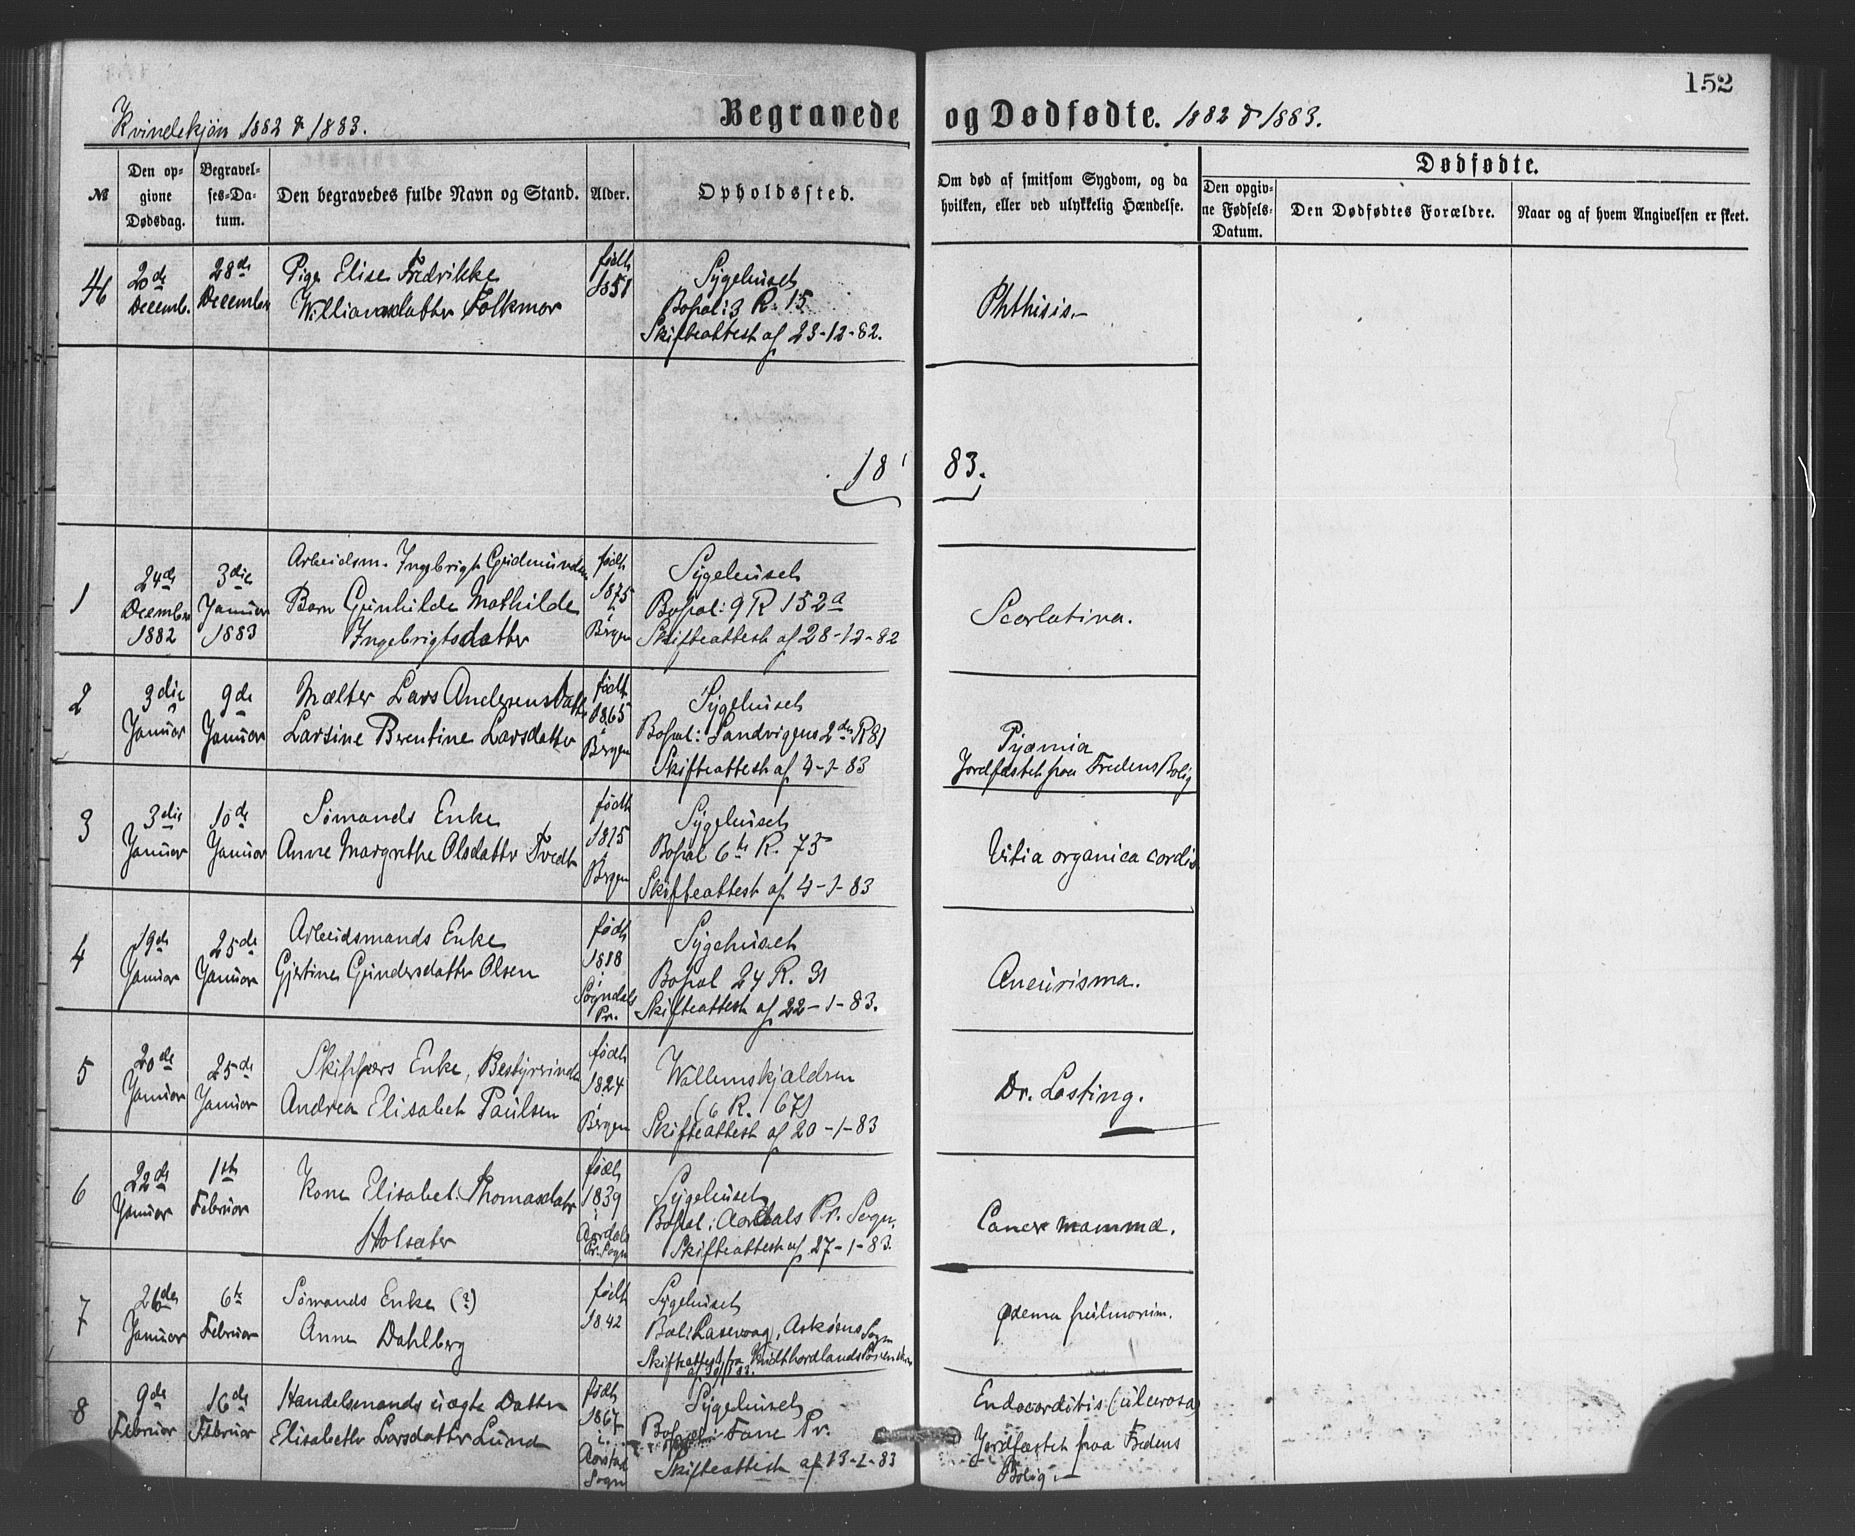 152
Kvindekjøn 1882 & 1883.
Begravede og Dødfødte. 1882 & 1883.
№
Den opgivne Dødsdag.
Begravelses-Datum.
Den begravedes fulde Navn og Stand.
Alder.
Opholdssted.
Om død af smitsom Sygdom, og da
hvilken, eller ved ulykkelig Hændelse.
Dødfødte.
Den opgivne Fødsels-Datum.
Den Dødfødtes Forældre.
Naar og af hvem Angivelsen er skeet.
46
20de
Decemb.
28de
December
Pige Elise Fredrikke
Williamsdatter Folkmar
født
1851
Sygehuset
Bopæl: 3 R. 15
Skifteattest af 23-12-82.
Phthisis.
18 83.
1
24de
December
1882
3die
Januar
1883
Arbeidsm. Ingebrigt Gudmundsens
Barn Gunhilde Mathilde
Ingebrigtsdatter
født
1875
i
Bergen
Sygehuset
Bopæl: 9 R 152a
Skifteattest af 28-12-82
Scarlatina.
2
3die
Januar
9de
Januar
Mælter Lars Andersens Datter
Larsine Berentine Larsdatter
født
1865
i
Bergen
Sygehuset
Bopæl: Sandvigens 2de R 81
Skifteattest af 4-1-83
Pyæmia
Jordfæstet fra Fredens Bolig
3
3die
Januar
10de
Januar
Sømands Enke
Anne Margrethe Olsdatter Tvedt
født
1815
i
Bergen
Sygehuset
Bopæl 6te R. 75
Skifteattest af 4-1-83
Vitia organica cordis
4
19de
Januar
25de
Januar
Arbeidsmands Enke
Gjertine Gundersdatter Olsen
født
1818
i
Sogndals
Pr.
Sygehuset
Bopæl 24 R. 31
Skifteattest af 22-1-83.
Aneurisma.
5
20de
Januar
25de
Januar
Skippers Enke, Bestyrerinde
Andrea Elisabet Paulsen
født
1824
i
Bergen
Wallemskjældren
(6 R. 67)
Skifteattest af 20-1-83
Dr. Lasting.
6
22de
Januar
1ste
Februar
Kone Elisabet Thomasdatter
Holsæter
født
1839
i
Aardals
Pr. Sogn
Sygehuset
Bopæl: Aardals Pr. Sogn.
Skifteattest af 27-1-83.
Cancer mammæ.
7
26de
Januar
6te
Februar
Sømands Enke (?)
Anne Dahlberg
født
1842
Sygehuset
Laxevaag, Askøens Sogn
Skifteattest fra Midthordlands
Ødema pulmonum.
8
9de
Februar
16de
Februar
Handelsmands uægte Datter
Elisabeth Larsdatter Lund
født
1867
i
Aarstad
Sogn
Sygehuset
Bopæl: Fane Pr.
Skifteattest af 13-2-83
Endocarditis (ulcerosa)
Jordfæstet fraa Fredens
Bolig.